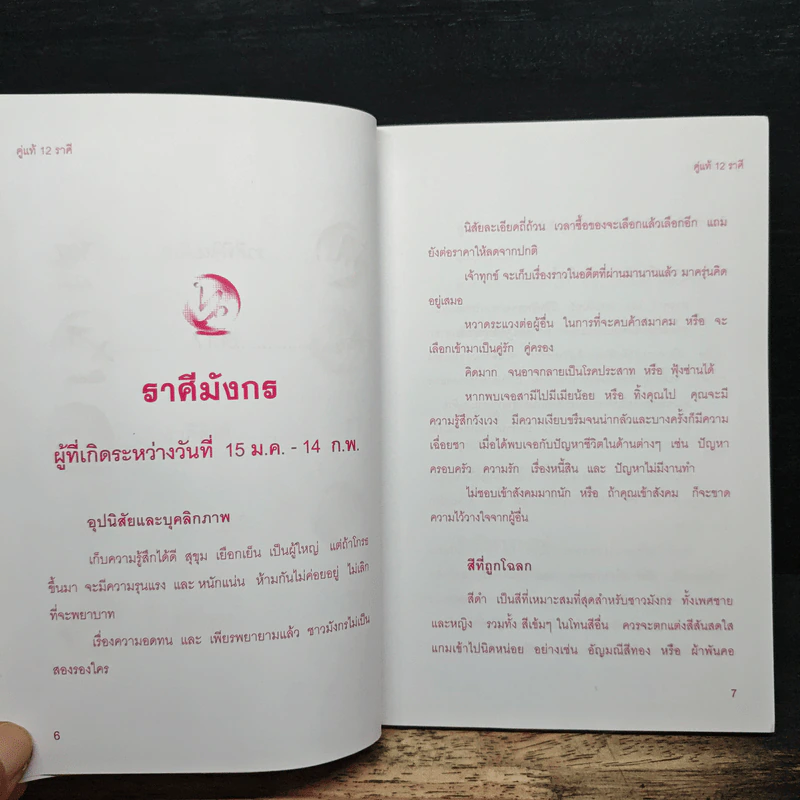 คู่แท้ 12 ราศี
ราศีมังกร
ผู้ที่เกิดระหว่างวันที่ 15 ม.ค. - 14 ก.พ.
อุปนิสัยและบุคลิกภาพ
เก็บความรู้สึกได้ดี สุขุม เยือกเย็น เป็นผู้ใหญ่ แต่ถ้าโกรธ
ขึ้นมา จะมีความรุนแรง และ หนักแน่น ห้ามกันไม่ค่อยอยู่ ไม่เลิก
ที่จะพยาบาท
เรื่องความอดทน และ เพียรพยายามแล้ว ชาวมังกรไม่เป็น
สองรองใคร
6
คู่แท้ 12 ราศี
นิสัยละเอียดถี่ถ้วน เวลาซื้อของจะเลือกแล้วเลือกอีก แถม
ยังต่อราคาให้ลดจากปกติ
เจ้าทุกข์ จะเก็บเรื่องราวในอดีตที่ผ่านมานานแล้ว มาครุ่นคิด
อยู่เสมอ
หวาดระแวงต่อผู้อื่น ในการที่จะคบค้าสมาคม หรือ จะ
เลือกเข้ามาเป็นคู่รัก คู่ครอง
คิดมาก จนอาจกลายเป็นโรคประสาท หรือ ฟุ้งซ่านได้
หากพบเจอสามีไปมีเมียน้อย หรือ ทิ้งคุณไป คุณจะมี
ความรู้สึกวังเวง มีความเงียบขรึมจนน่ากลัวและบางครั้งก็มีความ
เฉื่อยชา เมื่อได้พบเจอกับปัญหาชีวิตในด้านต่างๆ เช่น ปัญหา
ครอบครัว ความรัก เรื่องหนี้สิน และ ปัญหาไม่มีงานทำ
ไม่ชอบเข้าสังคมมากนัก หรือ ถ้าคุณเข้าสังคม ก็จะขาด
ความไว้วางใจจากผู้อื่น
สีที่ถูกโฉลก
สีดำ เป็นสีที่เหมาะสมที่สุดสำหรับชาวมังกร ทั้งเพศชาย
และหญิง รวมทั้ง สีเข้มๆ ในโทนสีอื่น ควรจะตกแต่งสีสันสดใส
แกมเข้าไปนิดหน่อย อย่างเช่น อัญมณีสีทอง หรือ ผ้าพันคอ
7